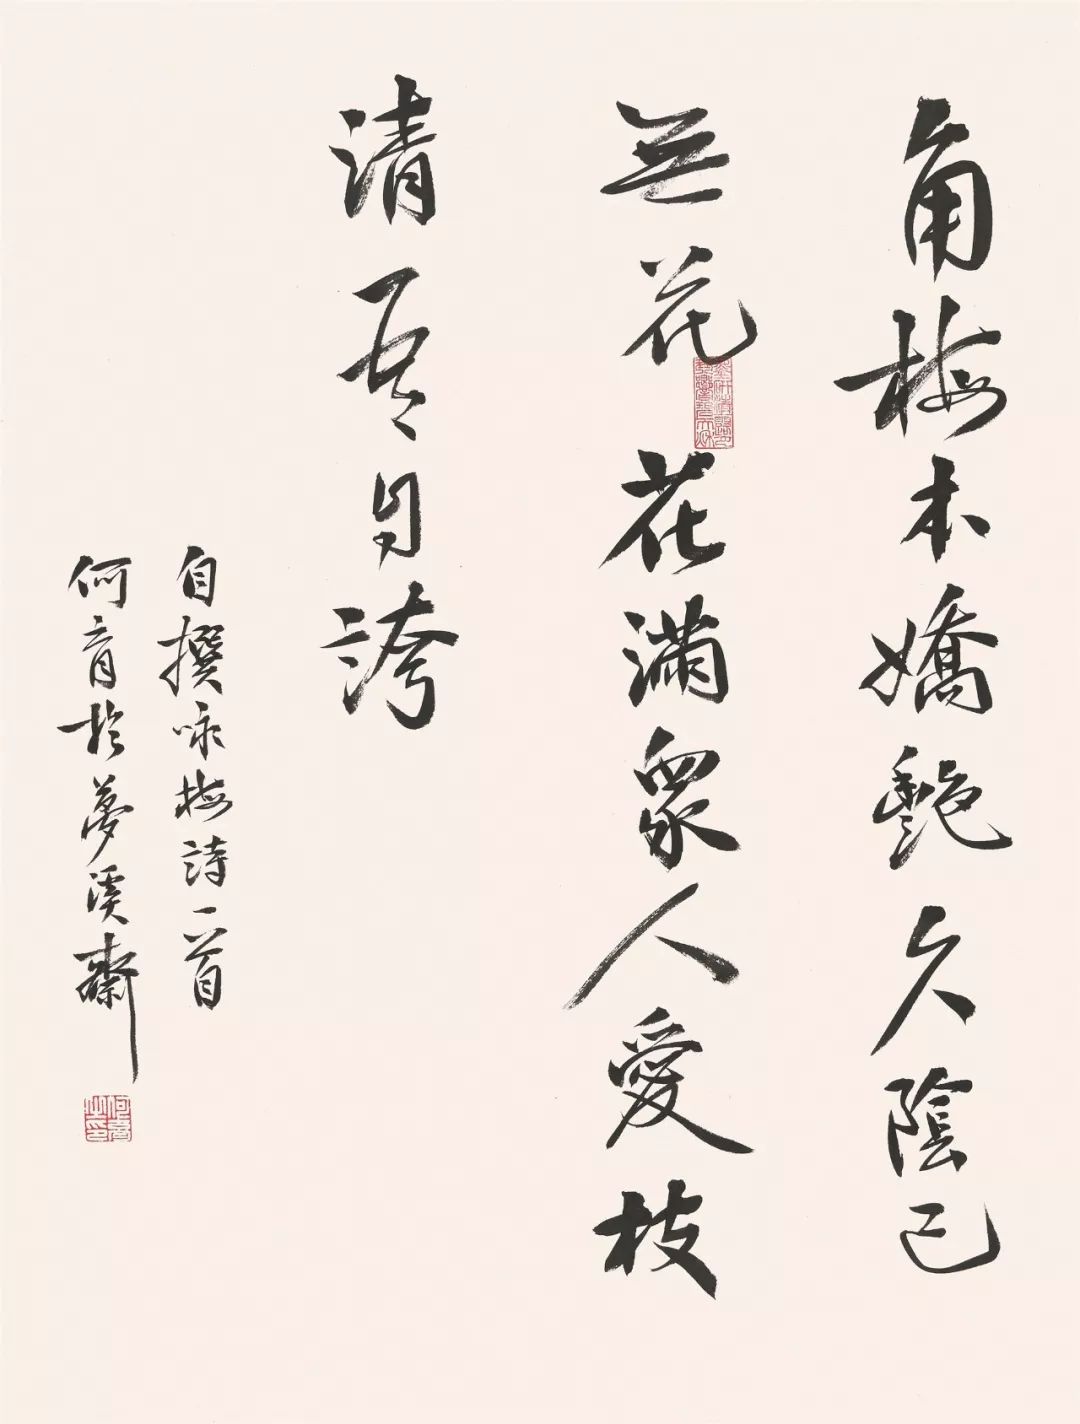 角梅本嬌艷久陰已
無花花滿眾人愛枝
清吾自誇
自撰咏梅詩一首
何育於夢溪齋